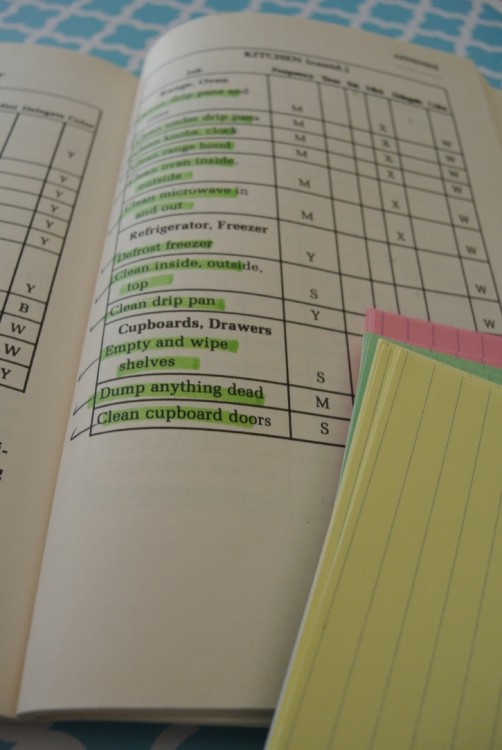 Delegate Color
Y
Y
Y
Y
Y
Y
B
W
W
Y
KITCHEN (cont'd.)
Job Frequency Time Delegate Color
Range, Oven
drip pans and
M
Clean under drip pans M X W
Clean knobs, clock M X W
Clean range hood M X W
Clean oven inside,
outside M X W
Clean microwave in
and out M X W
Refrigerator, Freezer
Defrost freezer Y W
Clean inside, outside,
top S W
Clean drip pan Y
Cupboards, Drawers
Empty and wipe
shelves S
Dump anything dead M
Clean cupboard doors S